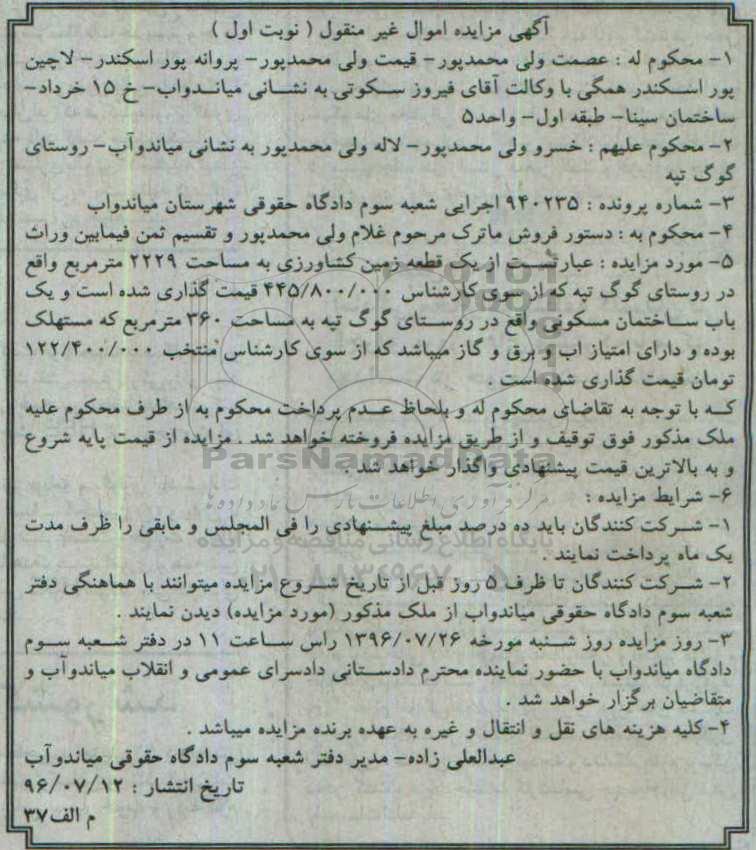 آگهی مزایده اموال غیر منقول ( نوبت اول )
۱- محکوم له : عصمت ولی محمدپور- قیمت ولی محمدپور- پروانه پور اسکندر- لاچین
پور اسکندر همگی با وکالت آقای فیروز سکوتی به نشانی میاندواب- خ ۱۵ خرداد-
ساختمان سینا- طبقه اول- واحد۵
۲- محکوم علیهم : خسرو ولی محمدپور- لاله ولی محمدپور به نشانی میاندوآب- روستای
گوگ تپه
۳- شماره پرونده : ۹۴۰۲۳۵ اجرایی شعبه سوم دادگاه حقوقی شهرستان میاندواب
۴- محکوم به : دستور فروش ماترک مرحوم غلام ولی محمدپور و تقسیم ثمن فیمابین وراث
۵- مورد مزایده : عبارتست از یک قطعه زمین کشاورزی به مساحت ۲۲۲۹ مترمربع واقع
در روستای گوگ تپه که از سوی کارشناس ۴۴۵/۸۰۰/۰۰۰ قیمت گذاری شده است و یک
باب ساختمان مسکونی واقع در روستای گوگ تپه به مساحت ۳۶۰ مترمربع که مستهلک
بوده و دارای امتیاز اب و برق و گاز میباشد که از سوی کارشناس منتخب ۱۲۲/۴۰۰/۰۰۰
تومان قیمت گذاری شده است .
که با توجه به تقاضای محکوم له و بلحاظ عدم پرداخت محکوم به از طرف محکوم علیه
ملک مذکور فوق توقیف و از طریق مزایده فروخته خواهد شد . مزایده از قیمت پایه شروع
و به بالاترین قیمت پیشنهادی واگذار خواهد شد .
ParsNamadData
مرکز فرآوری اطلاعات پارس نماد داده ها
۶- شرایط مزایده :
۱- شرکت کنندگان باید ده درصد مبلغ پیشنهادی را فی المجلس و مابقی را ظرف مدت
پایگاه اطلاع رسانی مناقصه و مزایده
یک ماه پرداخت نمایند .
۲- شرکت کنندگان تا ظرف ۵ روز قبل از تاریخ شروع مزایده میتوانند با هماهنگی دفتر
شعبه سوم دادگاه حقوقی میاندواب از ملک مذکور (مورد مزایده) دیدن نمایند .
۳- روز مزایده روز شنبه مورخه ۱۳۹۶/۰۷/۲۶ راس ساعت ۱۱ در دفتر شعبه سوم
دادگاه میاندواب با حضور نماینده محترم دادستانی دادسرای عمومی و انقلاب میاندوآب و
متقاضیان برگزار خواهد شد .
۴- کلیه هزینه های نقل و انتقال و غیره به عهده برنده مزایده میباشد .
عبدالعلی زاده- مدیر دفتر شعبه سوم دادگاه حقوقی میاندوآب
تاریخ انتشار : ۹۶/۰۷/۱۲
م الف۳۷